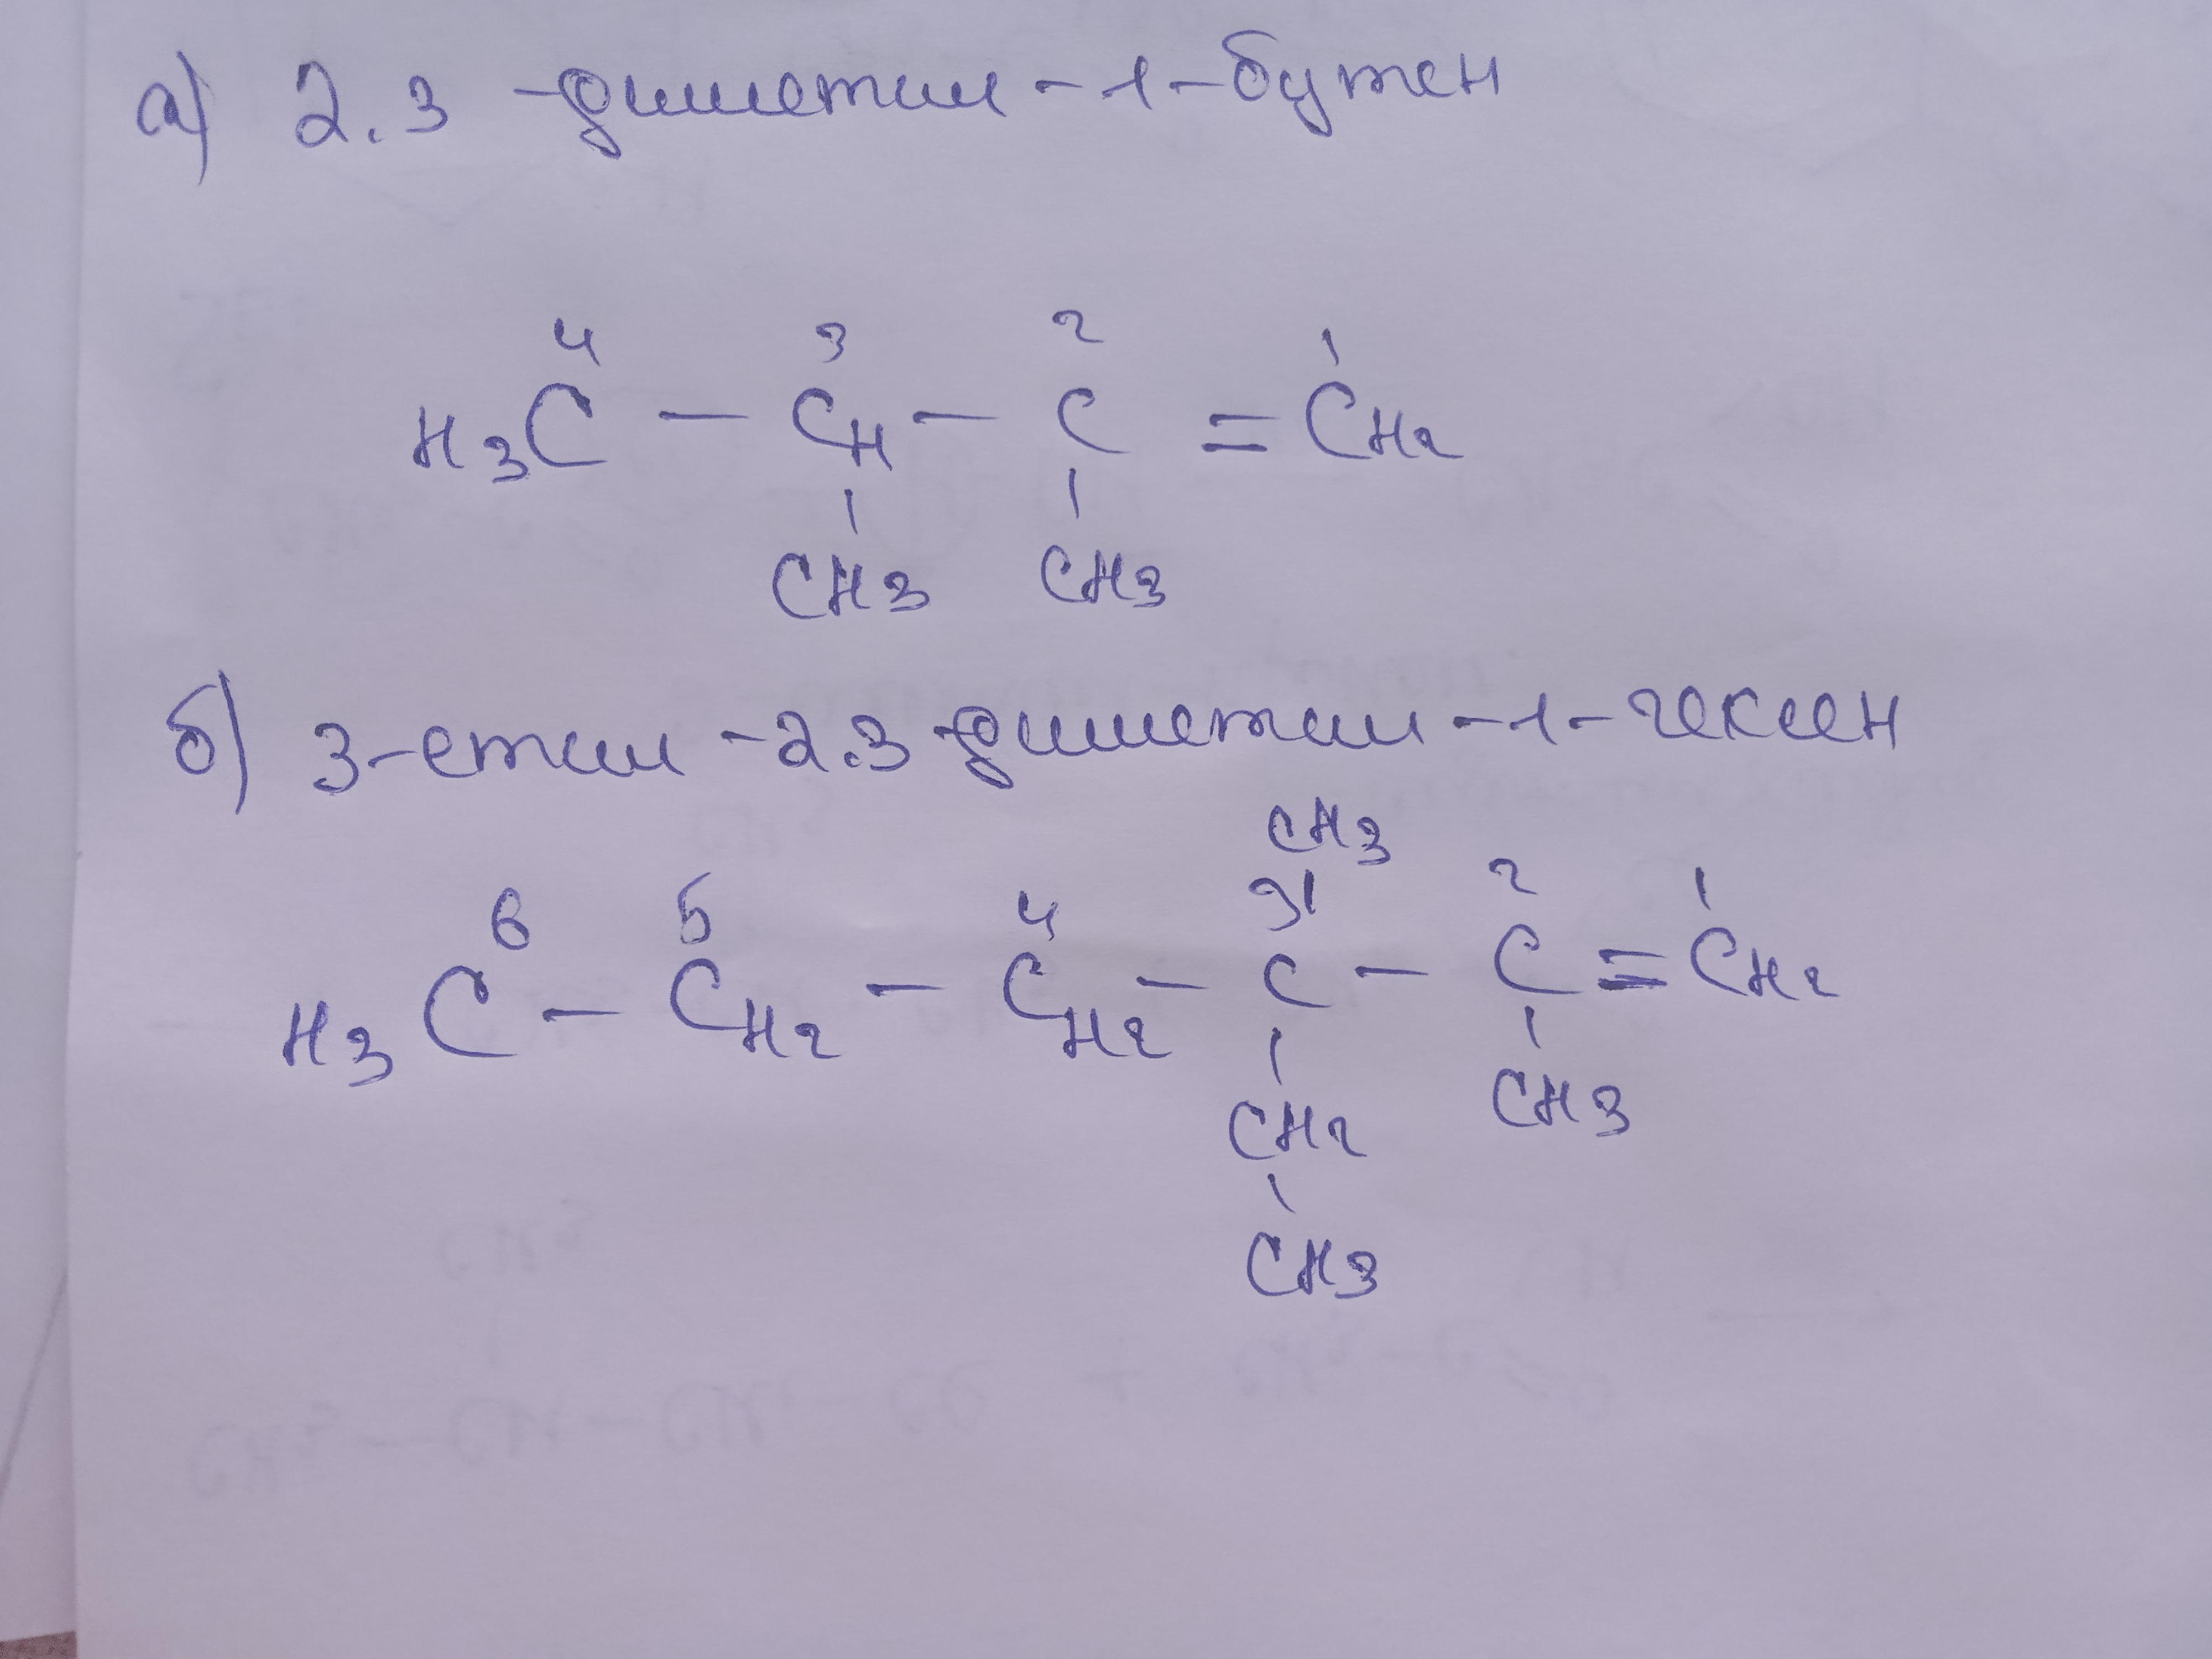 а) 2.3 -диметил-1-бутен
4 3 2 1
H3C - CH - C = CH2
CH3 CH3
б) 3-етил-2.3 диметил-1-гексен
CH3
6 5 4 3 2 1
H3C - CH2 - CH2 - C - C = CH2
CH2 CH3
CH3